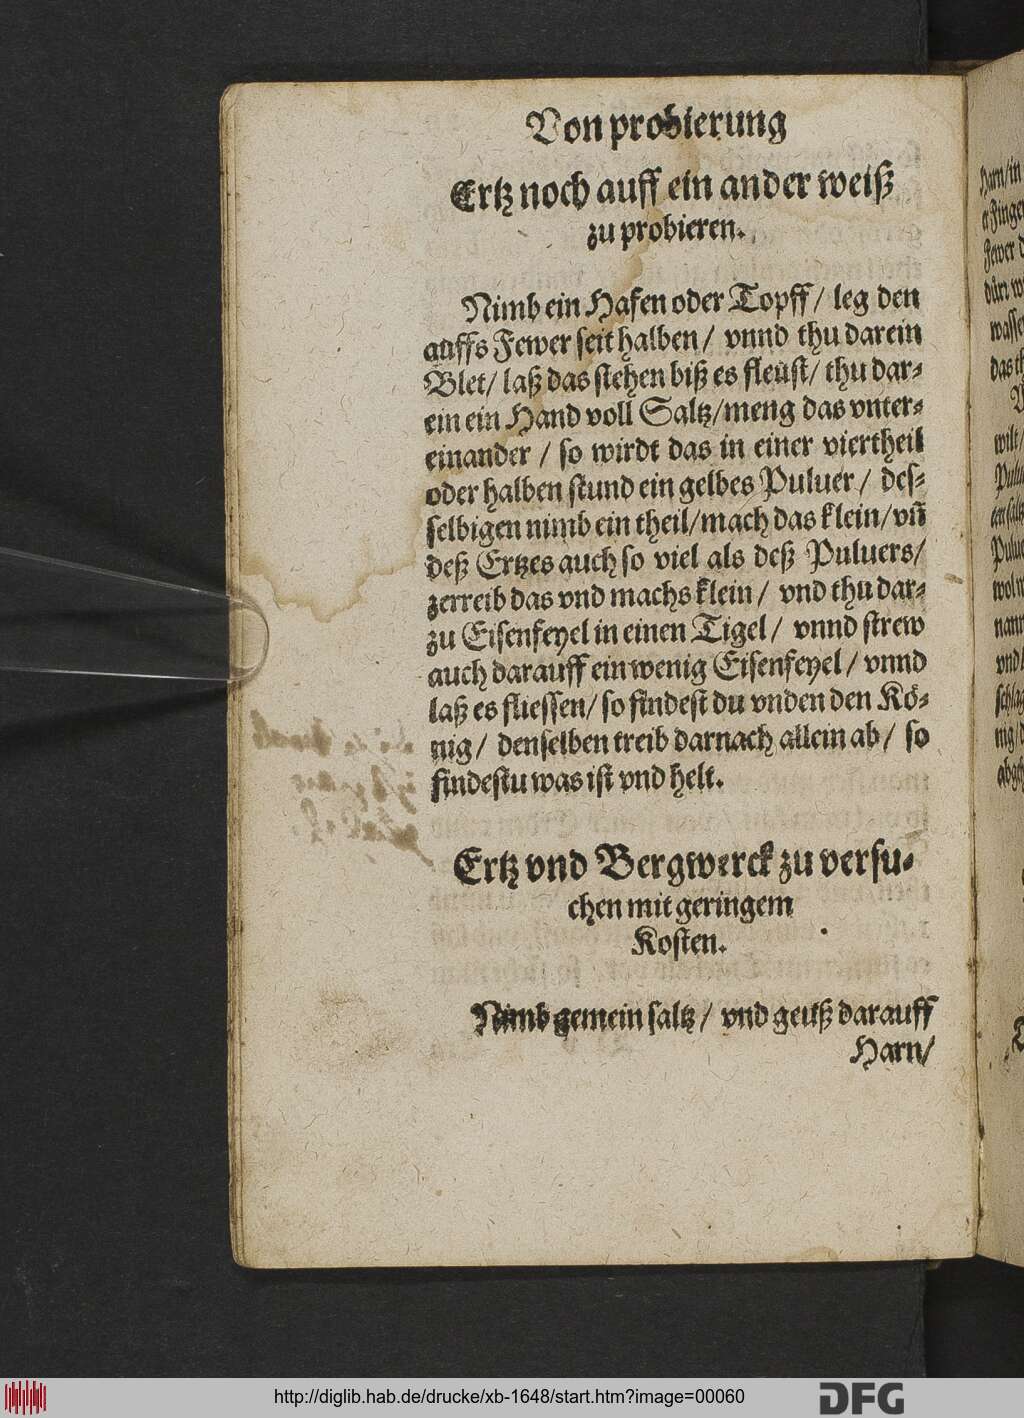 Von probierung
Ertz noch auff ein ander weiß
zu probieren.
Nimb ein Hafen oder Topff / leg den
auffs Fewer seit halben / vnnd thu darein
Blet / laß das stehen biß es fleust / thu dar⸗
ein ein Hand voll Saltz / meng das vnter⸗
einander / so wirdt das in einer viertheil
oder halben stund ein gelbes Puluer / des⸗
selbigen nimb ein theil / mach das klein / vñ
deß Ertzes auch so viel als deß Puluers /
zerreib das vnd machs klein / vnd thu dar⸗
zu Eisenfeyel in einen Tigel / vnnd strew
auch darauff ein wenig Eisenfeyel / vnnd
laß es fliessen / so findest du vnden den Kö⸗
nig / denselben treib darnach allein ab / so
findestu was ist vnd helt.
Ertz vnd Bergwerck zu versu⸗
chen mit geringem
Kosten.
Nimb gemein saltz / vnd geuß darauff
Harn /
http://diglib.hab.de/drucke/xb-1648/start.htm?image=00060
DFG